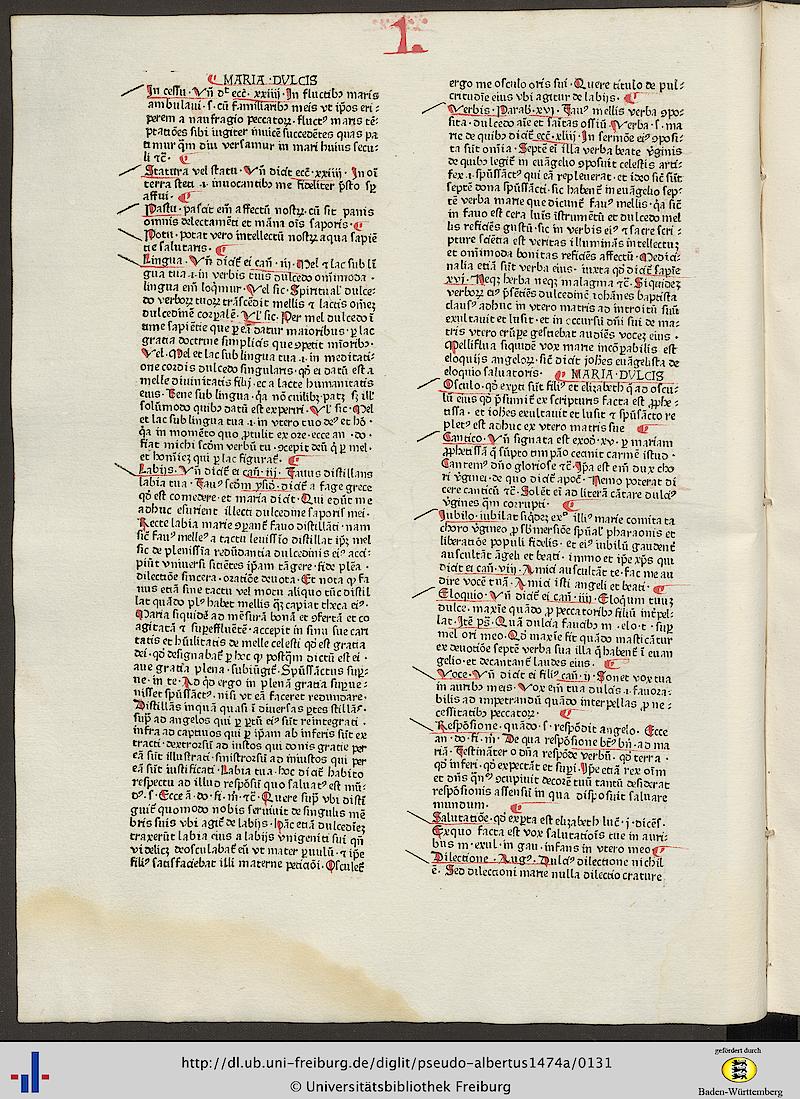 1.
MARIA DVLCIS
In cessu. Vñ dr̄ ecc̄. xxiiij. In fluctibꝰ maris
ambulaui. s. cū familiaribꝰ meis vt ip̄os eri⸗
perem a naufragio peccatoꝝ. fluctꝰ maris tē⸗
ptatiōes sibi iugiter inuicē succedētes quas pa
timur qm̄ diu versamur in mari huiꝰ secu⸗
li ⁊c̄.
Statura vel statu. Vñ dicit ecc̄. xxiiij. In oī
terra steti .i. inuocantibꝰ me fideliter p̄sto sp̄
affui.
Pastu. pascit em̄ affectū nostꝝ. cū sit panis
omnis delectamēti et māna oīs saporis.
Potu. potat vero intellectū nostꝝ aqua sapiē
tie salutaris.
Lingua. Vñ dicit̄ ei can̄. iij. Mel ⁊ lac sub lī
gua tua .i. in verbis tuis dulcedo om̄imoda.
lingua em̄ loq̄mur. Vel sic. Spiritual' dulce⸗
do verboꝝ tuoꝝ trāscēdit mellis ⁊ lactis om̄eꝫ
dulcedinē corꝑalē. Vl' sic. Per mel dulcedo ī
time sapiētie que ꝑ eā datur maioribus. ꝑ lac
gratia doctrine simplicis que ꝯpetit miōribꝰ.
Vel. Mel et lac sub lingua tua .i. in meditati⸗
one cordis dulcedo singularis. qꝫ ei datū est a
melle diuinitatis filij. ec a lacte humanitatis
eius. Bene sub lingua. q̄a nō cuilibꝫ patꝫ sꝫ ill'
solūmodo quibꝰ datū est exꝑeri. Vl' sic. Mel
et lac sub lingua tua .i. in vtero tuo deꝰ et hō.
q̄a in momēto quo ꝓtulit ex ore. ecce an. do.
fiat michi scd̄m verbū tu. ꝯcepit deū q̄ ꝑ mel.
et hom̄ieꝫ qui ꝑ lac figurat̄.
Labijs. Vñ dicit̄ ei can̄. iij. Fauus distillans
labia tua. Fauꝰ scd̄m ysid. dicit̄ a fage grece
qd̄ est comedere. et maria dicit. Qui edūt me
adhuc esurient illecti dulcedine saporis mei.
Recte labia marie ꝯꝑant̄ fauo distillāti. nam
sic fauꝰ melleꝰ a tactu leuissīo distillat ip̄ꝫ mel
sic de plenissīa redūdantia dulcedinis eiꝰ acci⸗
piūt vniuersi sitiētes ip̄am tāgere. fide plēa.
dilectiōe sincera. oratiōe deuota. Et nota qꝫ fa
uus etiā sine tactu vel motu aliquo tūc distil
lat quādo plꝰ habet mellis qꝫ capiat theca eiꝰ.
Maria siquidē ad mēsurā bonā et ꝯfertā et co
agitatā ⁊ suꝑeffluētē. accepit in sinu sue cari
tatis et hūilitatis de melle celesti qd̄ est gratia
dei. qd̄ designabat̄ ꝑ hoc qꝫ postq̄m dictū est ei.
aue gratia plena. subiūgit̄. Spūssāctus suꝑ⸗
ne. in te. Ad qd̄ ergo in plenā gratīa suꝑue⸗
nisset spūssāctꝰ. nisi vt eā faceret redundare.
Distillās inquā quasi ī diuersas ꝑtes stillās.
suꝑ ad angelos qui ꝑ ꝑtū eiꝰ sūt reintegrati.
infra ad captiuos qui ꝑ ip̄am ab inferis sūt ex
tracti. dextrorsū ad iustos qui donis gratie per
eā sūt illustrati. sinistrorsū ad iniustos qui per
eā sūt iustificati. Labia tua. hoc dicit̄ habito
respectu ad illud respōsū quo saluatꝰ est mū⸗
dꝰ. s. Ecce ā. do. fi. m̄. ⁊c̄. Quere suꝑ vbi disti
guit̄ quomodo nobis seruiuit de singulis mē
bris suis vbi agit̄ de labijs. hāc etiā dulcedieꝫ
traxerūt labia eius a labijs vnigeniti sui qn̄
videlicꝫ deosculabat̄ eū vt mater ꝑuulū. ⁊ ip̄e
filiꝰ satisfaciebat illi materne peticiōi. Osculet̄
ergo me osculo oris sui. Quere titulo de pul⸗
critudīe eius vbi agitur de labijs.
Verbis. Parab. xvi. Fauꝰ mellis verba ꝯpo⸗
sita. dulcedo aīe et saītas ossiū. Verba. s. ma
rie de quibꝰ dicit̄ ecc̄. xliij. In sermōe eiꝰ ꝯposi⸗
ta sūt om̄ia. Septē ei illa verba beate v̄ginis
de quibꝰ legit̄ in euāgelio ꝯposuit celestis arti⸗
fex .i. spūssāctꝰ qui eā repleuerat. et ideo sic sūt
septē dona spūssācti. sic habent̄ in euāgelio sep⸗
tē verba marie que dicunt̄ fauꝰ mellis. q̄a sic̄
in fauo est cera luīs īstrumētū et dulcedo mel
lis reficiēs gustū. sic in verbis eiꝰ ⁊ sacre scri⸗
pture sciētia est veritas illuminās intellectuꝫ
et om̄imoda bonitas reficiēs affectū. Medici⸗
nalia etiā sūt verba eius. iuxta qd̄ dicit̄ sapīe
xvi. Neqꝫ herba neqꝫ malagma ⁊c̄. Siquideꝫ
verboꝝ eiꝰ p̄sētiēs dulcedinē iohānes baptista
clausꝰ adhuc in vtero matris ad introitū suū
exultauit et lusit. et in occursū dn̄i sui de ma⸗
tris vtero erūpe gestiebat audiēs voceꝫ eius.
Melliflua siquidē vox marie incōꝑabilis est
eloquijs angeloꝝ. sic̄ dicit joħes euāgelista de
eloquio saluatoris.
MARIA DVLCIS
Osculo. qd̄ exꝑti sūt filiꝰ et elizabeth q̄ ad oscu⸗
lū eius qd̄ p̄sumit̄ ex scripturis facta est ꝓphe⸗
tissa. et ioħes exultauit et lusit ⁊ spūsācto re
pletꝰ est adhuc ex vtero matris sue
Cantico. Vñ signata est exod̄. xv. ꝑ mariam
ꝓphetissā q̄ sūpto timpāo cecinit carmē istud.
Cantemꝰ dn̄o gloriose ⁊c̄. Ip̄a est em̄ dux cho
ri v̄ginei. de quo dicit̄ apoc̄. Nemo poterat di
cere canticū ⁊c̄. Solēt ei ad literā cātare dulciꝰ
v̄gines qm̄ corrupti.
Jubilo. iubilat siq̄deꝫ exꝰ illiꝰ marie comita ta
choro v̄gineo ꝓ sbmersiōe spūal' pharaonis et
liberatiōe populi fidelis. et eiꝰ iubilū gaudent̄
auscultāt āgeli et beati. immo et ip̄e xp̄s qui
dicit ei can̄. viij. Amici auscultāt te. fac me au
dire vocē tuā. Amici isti angeli et beati.
Eloquio. Vñ dicit̄ ei can̄. iiij. Eloq̄um tuuꝫ
dulce. maxīe quādo ꝓ peccatoribꝰ filiū int̄pel⸗
lat. Itē pꝰ. Quā dulcia faucibꝰ m. elo. t. suꝑ
mel ori meo. Qd̄ maxīe fit quādo masticātur
ex deuotiōe septē verba sua illa q̄ habent̄ ī euan
gelio. et decantant̄ laudes eius.
Voce. Vñ dicit ei filiꝰ can̄. ij. Sonet vox tua
in auribꝰ meis. Vox em̄ tua dulcis .i. fauora⸗
bilis ad impetrandū quādo interpellas ꝓ ne⸗
cessitatibꝰ peccatoꝝ.
Respōsione. quādo. s. respōdit angelo. Ecce
an. do. fi. m̄. De qua respōsione bt̄ꝰ bn̄. ad ma
riā. Festināter o dn̄a respōde verbū. qd̄ terra.
qd̄ inferi. qd̄ expectāt et suꝑi. Ip̄e etiā rex oīm
et dn̄s qn̄ꝰ ꝯcupiuit decorē tuū tantū desiderat
respōsionis assensū in qua disposuit saluare
mundum.
Salutatiōe. qd̄ exꝑta est elizabeth luc̄. j. dicēs.
Exquo facta est vox salutatiōis tue in auri⸗
bus m. exul. in gau. infans in vtero meo
Dilectione. Augꝰ. Dulciꝰ dilectione nichil
ē. Sed dilectioni marie nulla dilectio crature
http://dl.ub.uni-freiburg.de/diglit/pseudo-albertus1474a/0131
© Universitätsbibliothek Freiburg
gefördert durch
Baden-Württemberg